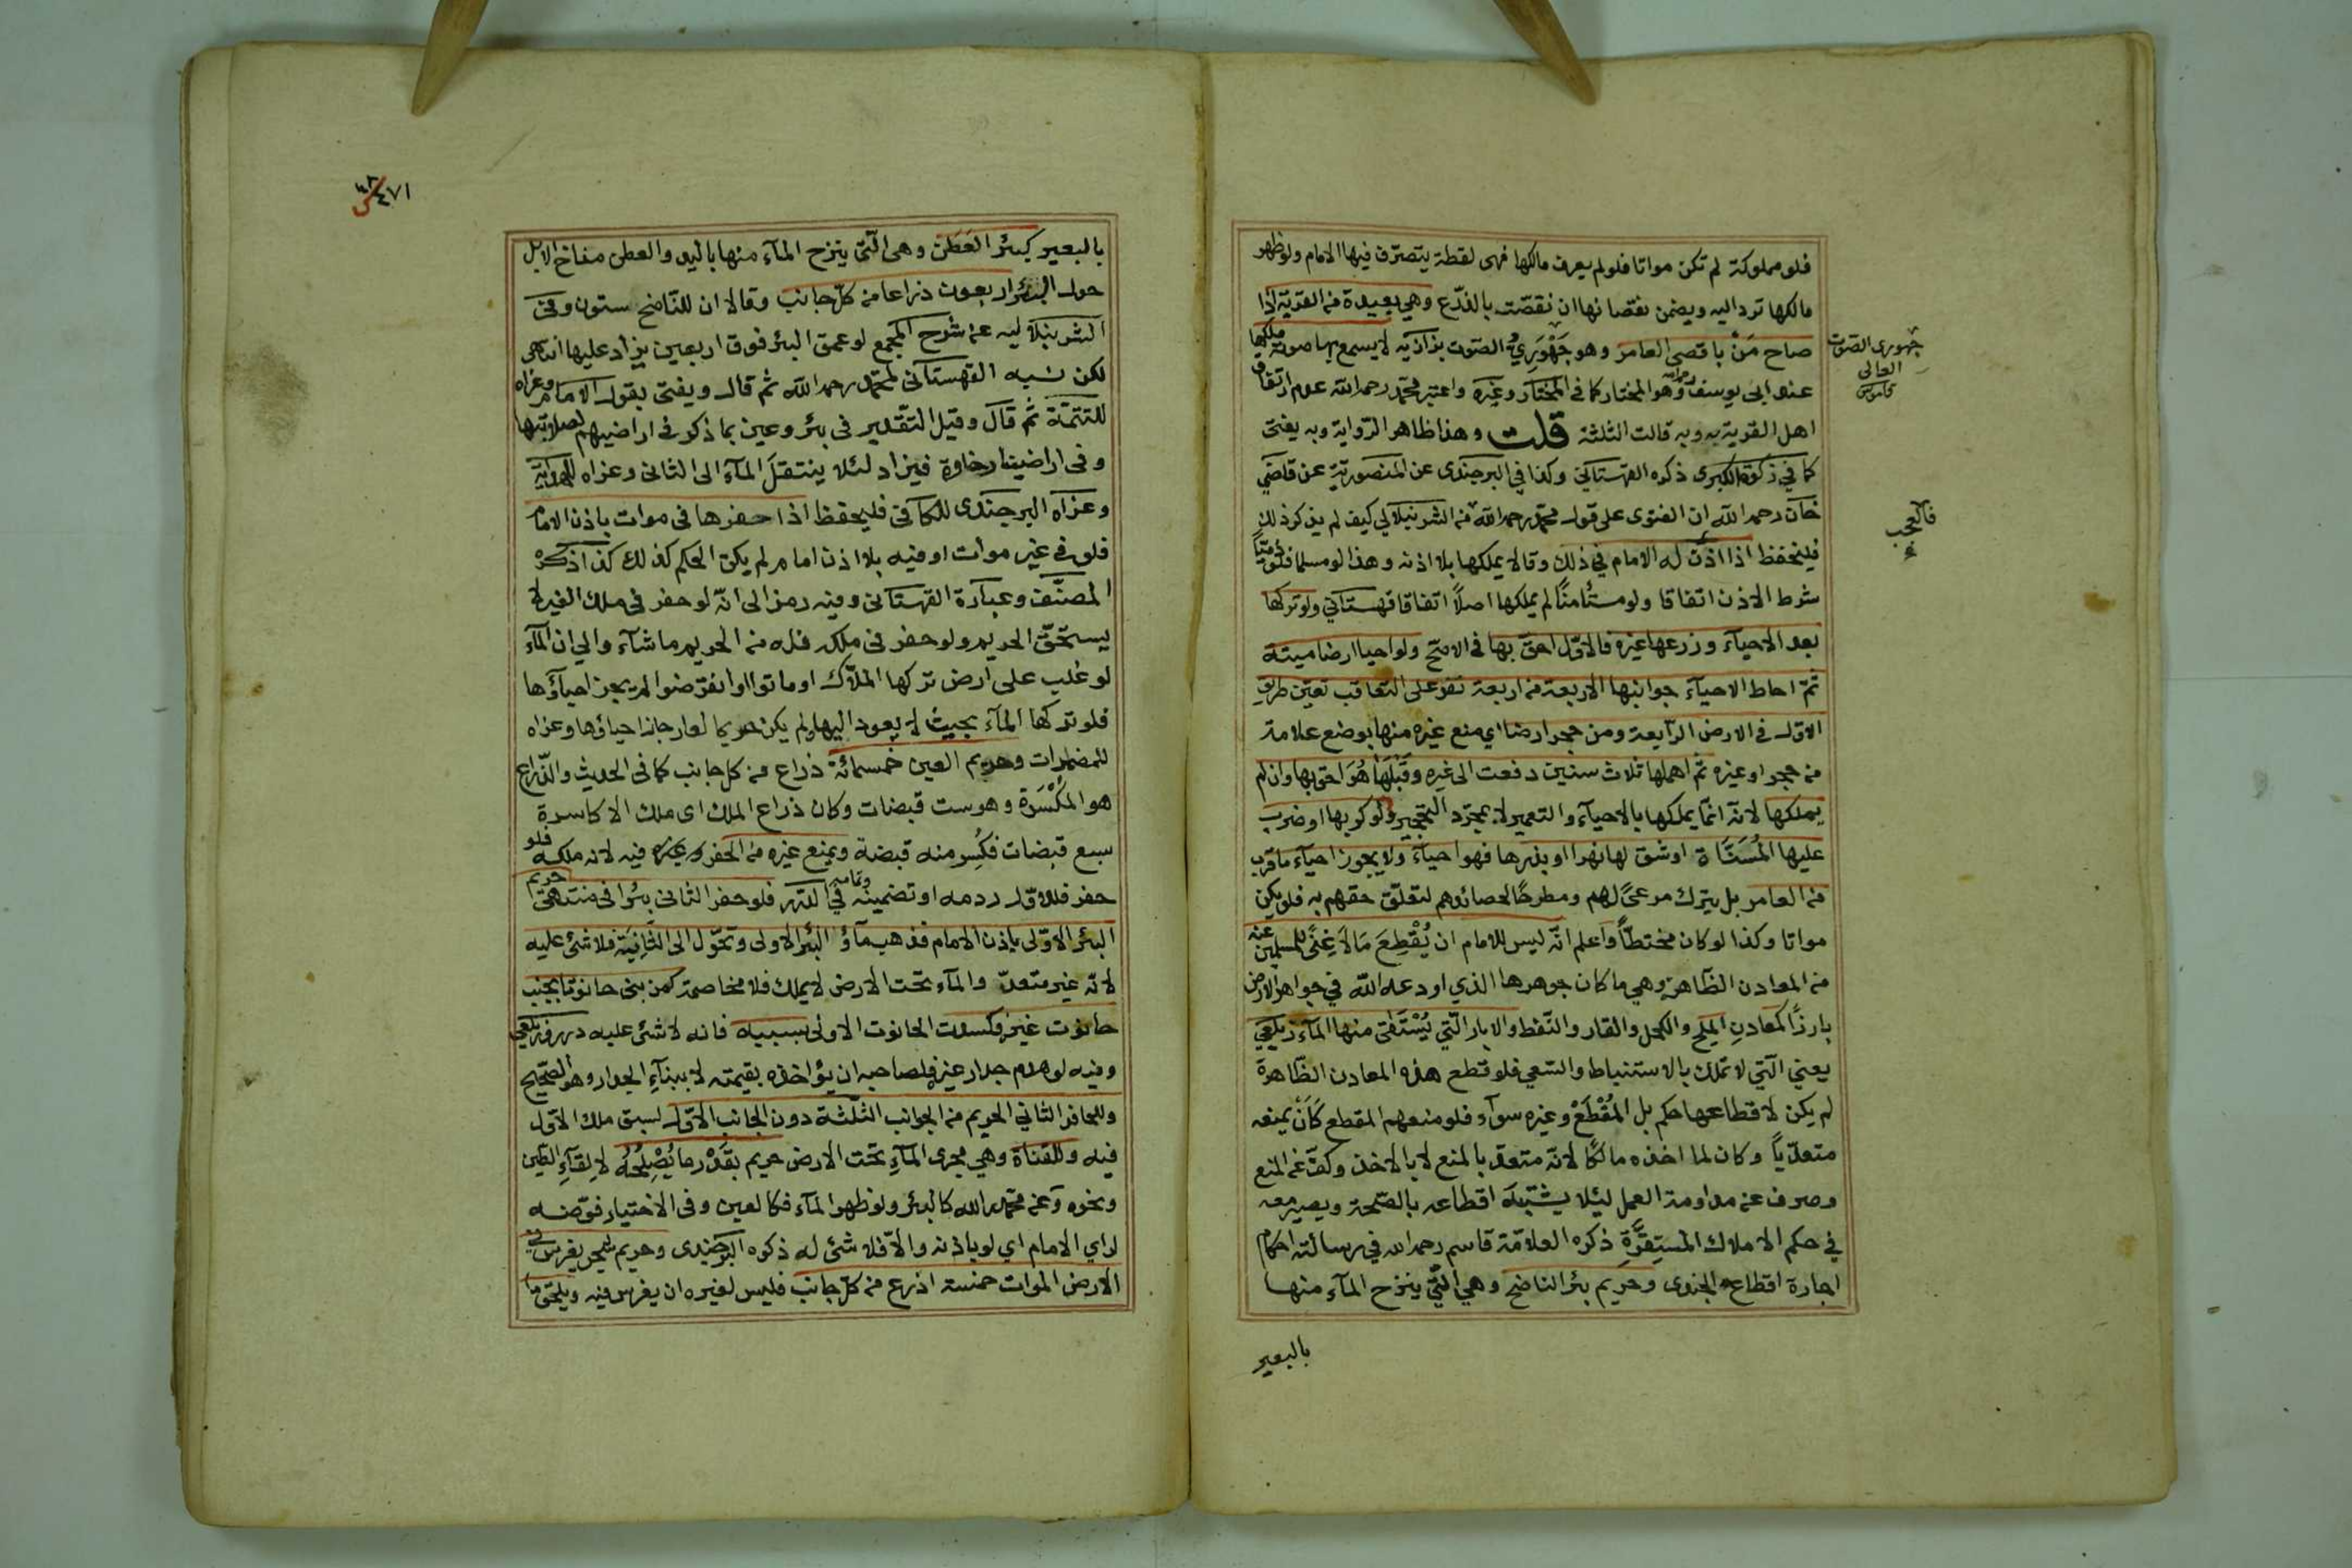 فلو مملوكة لم تكن مواتا فلو لم يعرف مالكها فهى لقطة يتصرّف فيها الامام ولو ظهر
مالكها ترد اليه ويضمن نقصانها ان نقصّت بالذرع وهي بعيدة من القرية اذا
صاح مَنْ باقصى العامر وهو جَهْوَرِيُّ الصّوت بزازيه لا يسمع بها صوته ملكها
عند ابى يوسف رحمه الله وهو المختار كما فى المختار وغيره واعتبر محمّد رحمه الله عدم ارتفاق
اهل القرية به وبه قالت الثلثة قلت وهذا ظاهر الرّواية وبه يفتى
كما في زكوة الكبرى ذكره القهستاني وكذا في البرجندى عن المنصوريّة عن قاضي
خان رحمه الله ان الفتوى على قول محمّد رحمه الله فمن الشرنبلالي كيف لم يذكر ذلك
فليحفظ اذا اذن له الامام في ذلك وقالا يملكها بلا اذنه وهذا لو مسلما فلو ذميّا
شرط الاذن اتفاقا ولو مستأمنًا لم يملكها اصلًا اتفاقا قهستاني ولو تركها
بعد الاحيآء وزرعها غيره فالاوّل احقّ بها فى الاصح ولو احيا ارضا ميتة
ثمّ احاط الاحيآء جوانبها الاربعة من اربعة نفر على التعاقب تعيّن طريق
الاول فى الارض الرّابعة ومن حجر ارضا اي منع غيره منها بوضع علامة
من حجر او غيره ثم اهملها ثلاث سنين دفعت الى غيره وقَبْلَهَا هُوَ احق بها وان لم
يملكها لانّه انّما يملكها بالاحيآء والتعمير لا بمجرّد التحجير ولو كربها او ضرب
عليها المُسَنَّاة او شق لها نهرا او بذرها فهو احيآء ولا يجوز احيآء ما قرب
من العامر بل يترك مرعىً لهم ومطرحًا لحصائدهم لتعلّق حقهم به فلم يكن
مواتا وكذا لو كان محتطبًا واعلم انّه ليس للامام ان يُقْطِعَ مَا لَا غِنًى للمسلمين عنه
من المعادن الظّاهرة وهي ما كان جوهرها الذي اودعه الله في جواهر الارض
بارزًا كمعادنِ الملح والكحل والقار والنّفط والابار الّتي يُسْتَقٰى منها المآء زيلعي
يعني الّتي لا تملك بالاستنباط والسّعي فلو قطع هذه المعادن الظّاهرة
لم يكن لاقطاعها حكم بل المُقْطَعُ وغيره سوآء فلو منعهم المقطع كَانَ بمنعه
متعدّيًا وكان لما اخذه مالكًا لانّه متعد بالمنع لا بالاخذ وكفّ عن المنع
وصرف عن مداومة العمل ليئلا يشتبه اقطاعه بالصّحة ويصير معه
في حكم الاملاك المستقرّة ذكره العلّامة قاسم رحمه الله في رسالته احكام
اجارة اقطاع الجندى وحريم بئر الناضح وهي الّتي ينزح المآء منها
بالبعير
جهورى الصّوت
العالى
قاموس
فالعجب
٤٧١
بالبعير كبئر العَطَن وهى الّتى ينزح المآء منها باليد والعطن مناخ الابل
حول البئر اربعون ذراعا من كلّ جانب وقالا ان للنّاضح ستون وفى
الشرنبلاليه عن شرح المجمع لو عمق البئر فوق اربعين يزاد عليها انتهى
لكن نسبه القهستانى لمحمّد رحمه الله ثم قال ويفتى بقول الامام وعزاه
للتتمّة ثم قال وقيل التّقدير فى بئر وعين بما ذكر فى اراضيهم لصلابتها
وفى اراضينا رخاوة فيزاد لئلا ينتقل المآء الى الثانى وعزاه للهداية
وعزاه البرجندى للكافى فليحفظ اذا حفرها فى موات باذن الامام
فلو فى غير موات او فيه بلا اذن امام لم يكن الحكم كذلك كذا ذكره
المصنّف وعبارة القهستانى وفيه رمز الى انّه لو حفر فى ملك الغير لا
يستحقّ الحريم ولو حفر فى ملكه فله من الحريم ما شآء والى ان المآء
لو غلب على ارض تركها الملّاك او ماتوا او انقرضوا لم يجز احيآؤها
فلو تركها المآء بحيث لا يعود اليها ولم يكن حريما لعامر جاز احياؤها وعزاه
للمضمرات وحريم العين خمسمائة ذراع من كل جانب كما فى الحديث والذّراع
هو المكسّرة وهو ست قبضات وكان ذراع الملك اى ملك الاكاسرة
سبع قبضات فكُسِر منه قبضة ويمنع غيره من الحفر وغيره فيه لانه ملكه فلو
حفر فللاوّل ردمه او تضمينه وتمامه في الدّرر فلو حفر الثانى بئرا فى منتهى حريم
البئر الاوّلى باذن الامام فذهب مآؤ البئر الاولى وتحوّل الى الثّانية فلا شئ عليه
لانّه غير متعدّ والمآء تحت الارض لا يملك فلا مخاصمة كمن بنى حانوتا بجنب
حانوت غيره فكسدت الحانوت الاولى بسببه فانه لا شئ عليه درر وزيلعي
وفيه لو هدم جدار غيره فلصاحبه ان يؤاخذه بقيمته لا ببنآءِ الجدار وهو الصّحيح
وللحافر الثاني الحريم من الجوانب الثّلثة دون الجانب الاوّل لسبق ملك الاوّل
فيه وللقناة وهي مجرى المآءِ تحت الارض حريم بقَدْرِ ما يُصْلِحُهُ لاِلقآءِ الطّين
ونحوه وعن محمّد رحمه الله كالبئر ولو ظهر المآء فكالعين وفى الاختيار فوّضه
لراي الامام اي لو باذنه والّا فلا شئ له ذكره البرجندى وحريم شجر يغرس في
الارض الموات خمسة اذرع من كلّ جانب فليس لغيره ان يغرس فيه ويلحق ما